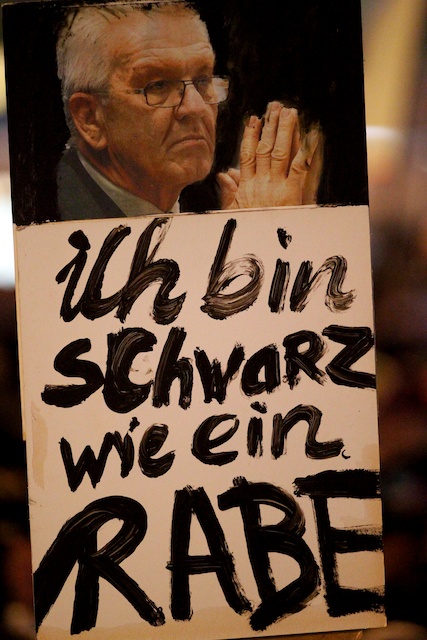 ich bin
schwarz
wie ein
RABE